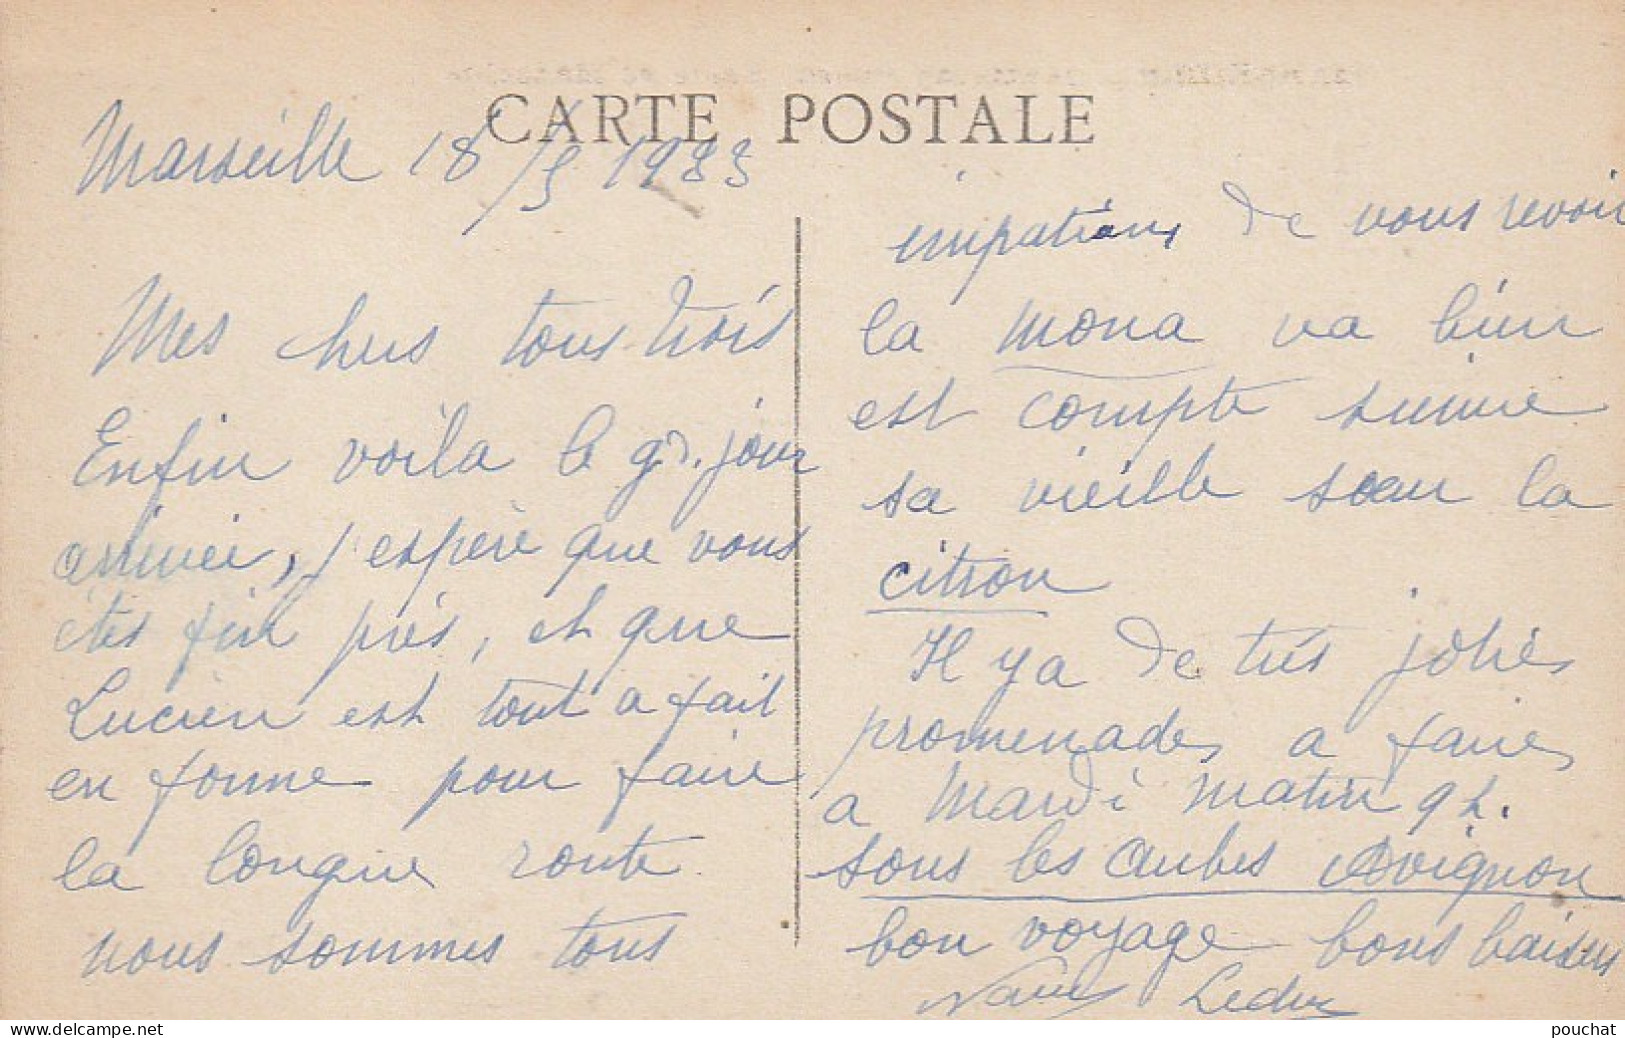 CARTE POSTALE
Marseille 18/5 1933
Mes chers tous trois
Enfin voila le gd. jour
arrivée, j'espère que vous
êtes fin près, et que
Lucien est tout a fait
en forme pour faire
la longue route
nous sommes tous
impatients de vous revoir
la Mona va bien
est compte suivre
sa vieille sœur la
citron
Il y a de très jolies
promenades a faires
a Mardi matin 9 h.
sous les aubes Avignon
bon voyage bons baisers
Leduc
pouchat